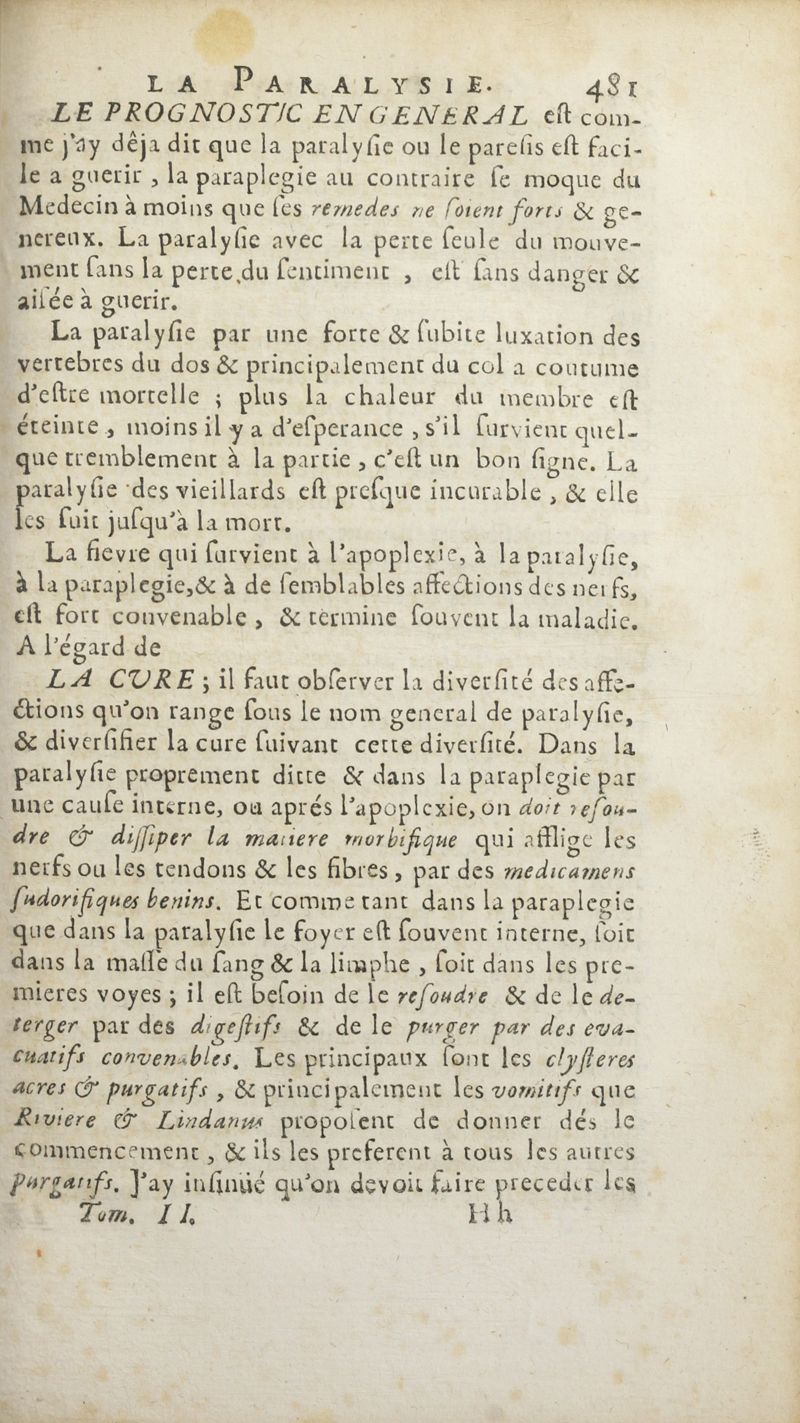 LA PARALYSIE. 481
LE PROGNOSTIC EN GENERAL eſt com-
me j'ay dêja dit que la paralyſie ou le pareſis eſt faci-
le a guerir , la paraplegie au contraire ſe moque du
Medecin à moins que ſes remedes ne ſoient forts & ge-
nereux. La paralyſie avec la perte ſeule du mouve-
ment ſans la perte du ſentiment , eſt ſans danger &
aiſée à guerir.
La paralyſie par une forte & ſubite luxation des
vertebres du dos & principalement du col a coutume
d'eſtre mortelle ; plus la chaleur du membre eſt
éteinte , moins il y a d'eſperance , s'il ſurvient quel-
que tremblement à la partie , c'eſt un bon ſigne. La
paralyſie des vieillards eſt preſque incurable , & elle
les ſuit juſqu'à la mort.
La fievre qui ſurvient à l'apoplexie, à la paralyſie,
à la paraplegie,& à de ſemblables affections des nerfs,
eſt fort convenable , & termine ſouvent la maladie.
A l'égard de
LA CVRE ; il faut obſerver la diverſité des affe-
ctions qu'on range ſous le nom general de paralyſie,
& diverſifier la cure ſuivant cette diverſité. Dans la
paralyſie proprement ditte & dans la paraplegie par
une cauſe interne, ou aprés l'apoplexie, on doit reſou-
dre & diſſiper la matiere morbifique qui afflige les
nerfs ou les tendons & les fibres , par des medicamens
ſudorifiques benins. Et comme tant dans la paraplegie
que dans la paralyſie le foyer eſt ſouvent interne, ſoit
dans la maſſe du ſang & la limphe , ſoit dans les pre-
mieres voyes ; il eſt beſoin de le reſoudre & de le de-
terger par des digeſtifs & de le purger par des eva-
cuatifs convenables. Les principaux ſont les clyſteres
acres & purgatifs , & principalement les vomitifs que
Riviere & Lindanus propoſent de donner dés le
commencement , & ils les preferent à tous les autres
purgatifs. J'ay inſinüé qu'on devoit faire preceder les
Tom. II. Hh